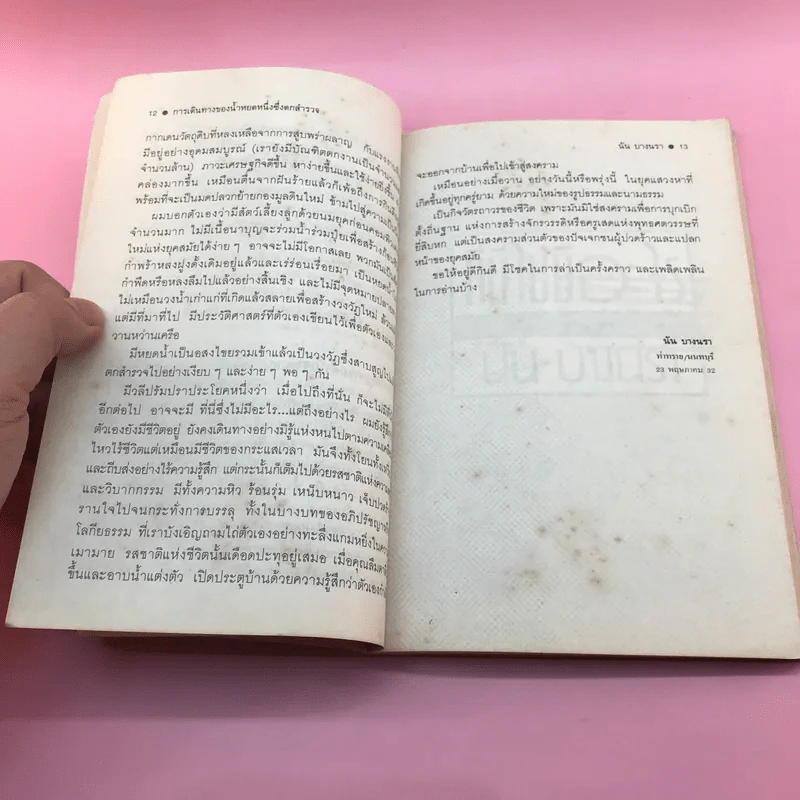 12 ● การเดินทางของน้ำหยดหนึ่งซึ่งตกสำรวจ
กากเดนวัตถุดิบที่หลงเหลือจากการสูบพร่าผลาญ กับแรงงาน
มีอยู่อย่างอุดมสมบูรณ์ (เรายังมีบัณฑิตตกงานเป็นจำนวน
จำนวนล้าน) ภาวะเศรษฐกิจดีขึ้น หาง่ายขึ้นและใช้ง่ายยิ่งขึ้น
คล่องมากขึ้น เหมือนตื่นจากฝันร้ายแล้วก็เพ้อถึงการกินดี
พร้อมที่จะเป็นมดปลวกย้ายกองมูลดินใหม่ ข้ามไปสู่ความเป็น
ผมบอกตัวเองว่ามีสัตว์เลี้ยงลูกด้วยนมยุคก่อนคอมพิว
จำนวนมาก ไม่มีเนื้อนาบุญจะร่วมน้ำร่วมปุ๋ยเพื่อสร้างก้อน
ใหม่แห่งยุคสมัยได้ง่าย ๆ อาจจะไม่มีโอกาสเลย พวกมันเป็น
กำพร้าหลงฝูงดั้งเดิมอยู่และเร่ร่อนเรื่อยมา เป็นหยดน้ำ
กำพืดหรือหลงลืมไปแล้วอย่างสิ้นเชิง และไม่มีจุดหมายปลาย
ไม่เหมือนวงน้ำเก่าแก่ที่เกิดแล้วสลายเพื่อสร้างวงวัฏใหม่ ด้วย
แต่มีที่มาที่ไป มีประวัติศาสตร์ที่ตัวเองเขียนไว้เพื่อตัวเองและ
วานหว่านเครือ
มีหยดน้ำเป็นอสงไขยรวมเข้าแล้วเป็นวงวัฏซึ่งสาบสูญไป
ตกสำรวจไปอย่างเงียบ ๆ และง่าย ๆ พอ ๆ กัน
มีวลีปรัมปราประโยคหนึ่งว่า เมื่อไปถึงที่นั่น ก็จะไม่มี
อีกต่อไป อาจจะมี ที่นี่ซึ่งไม่มีอะไร...แต่ถึงอย่างไร ผมยังรู้
ตัวเองยังมีชีวิตอยู่ ยังคงเดินทางอย่างมิรู้แห่งหนไปตามความ
ไหวไร้ชีวิตแต่เหมือนมีชีวิตของกระแสเวลา มันจึงทั้งโยนทั้ง
และถีบส่งอย่างไร้ความรู้สึก แต่กระนั้นก็เต็มไปด้วยรสชาติแห่งความ
และวิบากกรรม มีทั้งความหิว ร้อนรุ่ม เหน็บหนาว เจ็บปวด
รานใจไปจนกระทั่งการบรรลุ ทั้งในบางบทของอภิปรัชญา
โลกียธรรม ที่เราบังเอิญถามไถ่ตัวเองอย่างทะลึ่งแกมหยิ่งใน
เมามาย รสชาติแห่งชีวิตนั้นเดือดปะทุอยู่เสมอ เมื่อคุณลืมตา
ขึ้นและอาบน้ำแต่งตัว เปิดประตูบ้านด้วยความรู้สึกว่าตัวเอง
นัน บางนรา ● 13
จะออกจากบ้านเพื่อไปเข้าสู่สงคราม
เหมือนอย่างเมื่อวาน อย่างวันนี้หรือพรุ่งนี้ ในยุคแสวงหาที่
เกิดขึ้นอยู่ทุกครู่ยาม ด้วยความใหม่ของรูปธรรมและนามธรรม
เป็นกิจวัตรถาวรของชีวิต เพราะมันมิใช่สงครามเพื่อการบุกเบิก
ตั้งถิ่นฐาน แห่งการสร้างจักรวรรดิหรือครูเสดแห่งพุทธศตวรรษที่
ยี่สิบหก แต่เป็นสงครามส่วนตัวของปัจเจกชนผู้ปวดร้าวและแปลก
หน้าของยุคสมัย
ขอให้อยู่ดีกินดี มีโชคในการล่าเป็นครั้งคราว และเพลิดเพลิน
ในการอ่านบ้าง
นัน บางนรา
ท่าทราย/นนทบุรี
23 พฤษภาคม 32